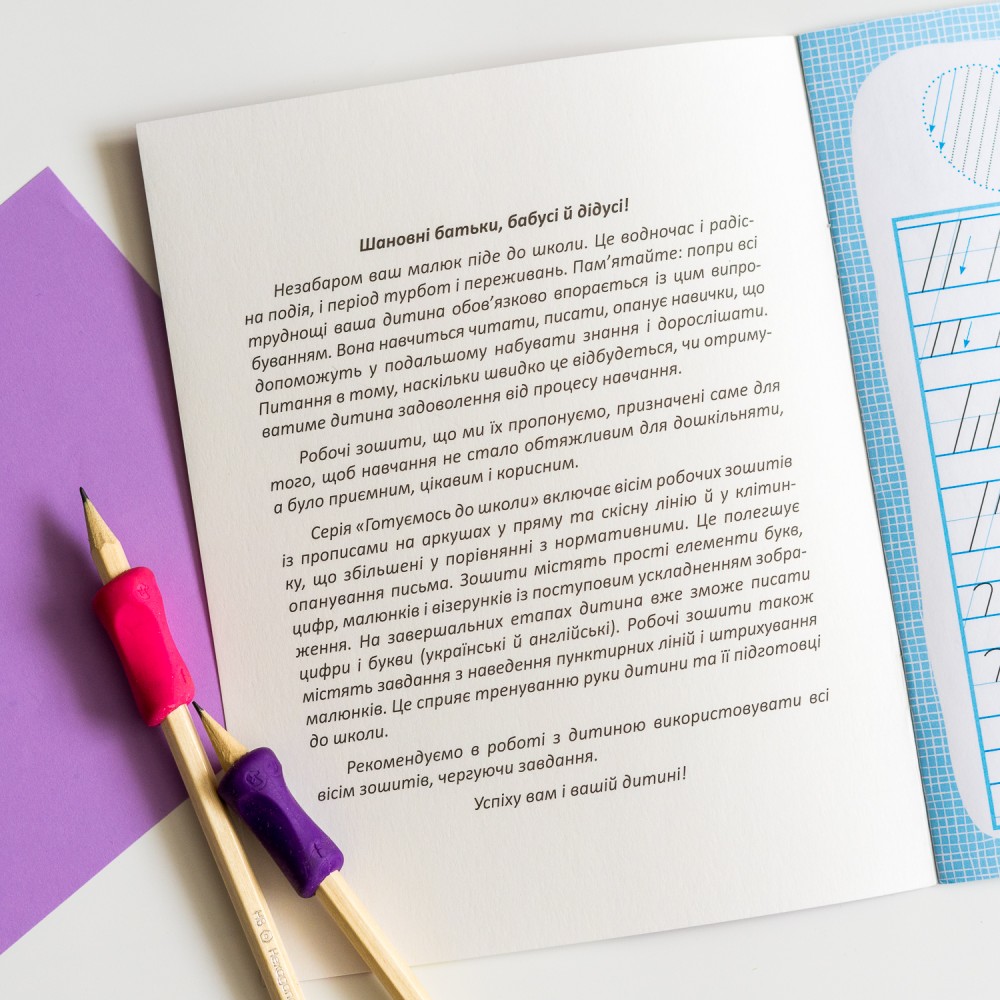 Шановні батьки, бабусі й дідусі!
Незабаром ваш малюк піде до школи. Це водночас і радіс-
на подія, і період турбот і переживань. Пам’ятайте: попри всі
труднощі ваша дитина обов’язково впорається із цим випро-
буванням. Вона навчиться читати, писати, опанує навички, що
допоможуть у подальшому набувати знання і дорослішати.
Питання в тому, наскільки швидко це відбудеться, чи отриму-
ватиме дитина задоволення від процесу навчання.
Робочі зошити, що ми їх пропонуємо, призначені саме для
того, щоб навчання не стало обтяжливим для дошкільняти,
а було приємним, цікавим і корисним.
Серія «Готуємось до школи» включає вісім робочих зошитів
із прописами на аркушах у пряму та скісну лінію й у клітин-
ку, що збільшені у порівнянні з нормативними. Це полегшує
опанування письма. Зошити містять прості елементи букв,
цифр, малюнків і візерунків із поступовим ускладненням зобра-
ження. На завершальних етапах дитина вже зможе писати
цифри і букви (українські й англійські). Робочі зошити також
містять завдання з наведення пунктирних ліній і штрихування
малюнків. Це сприяє тренуванню руки дитини та її підготовці
до школи.
Рекомендуємо в роботі з дитиною використовувати всі
вісім зошитів, чергуючи завдання.
Успіху вам і вашій дитині!